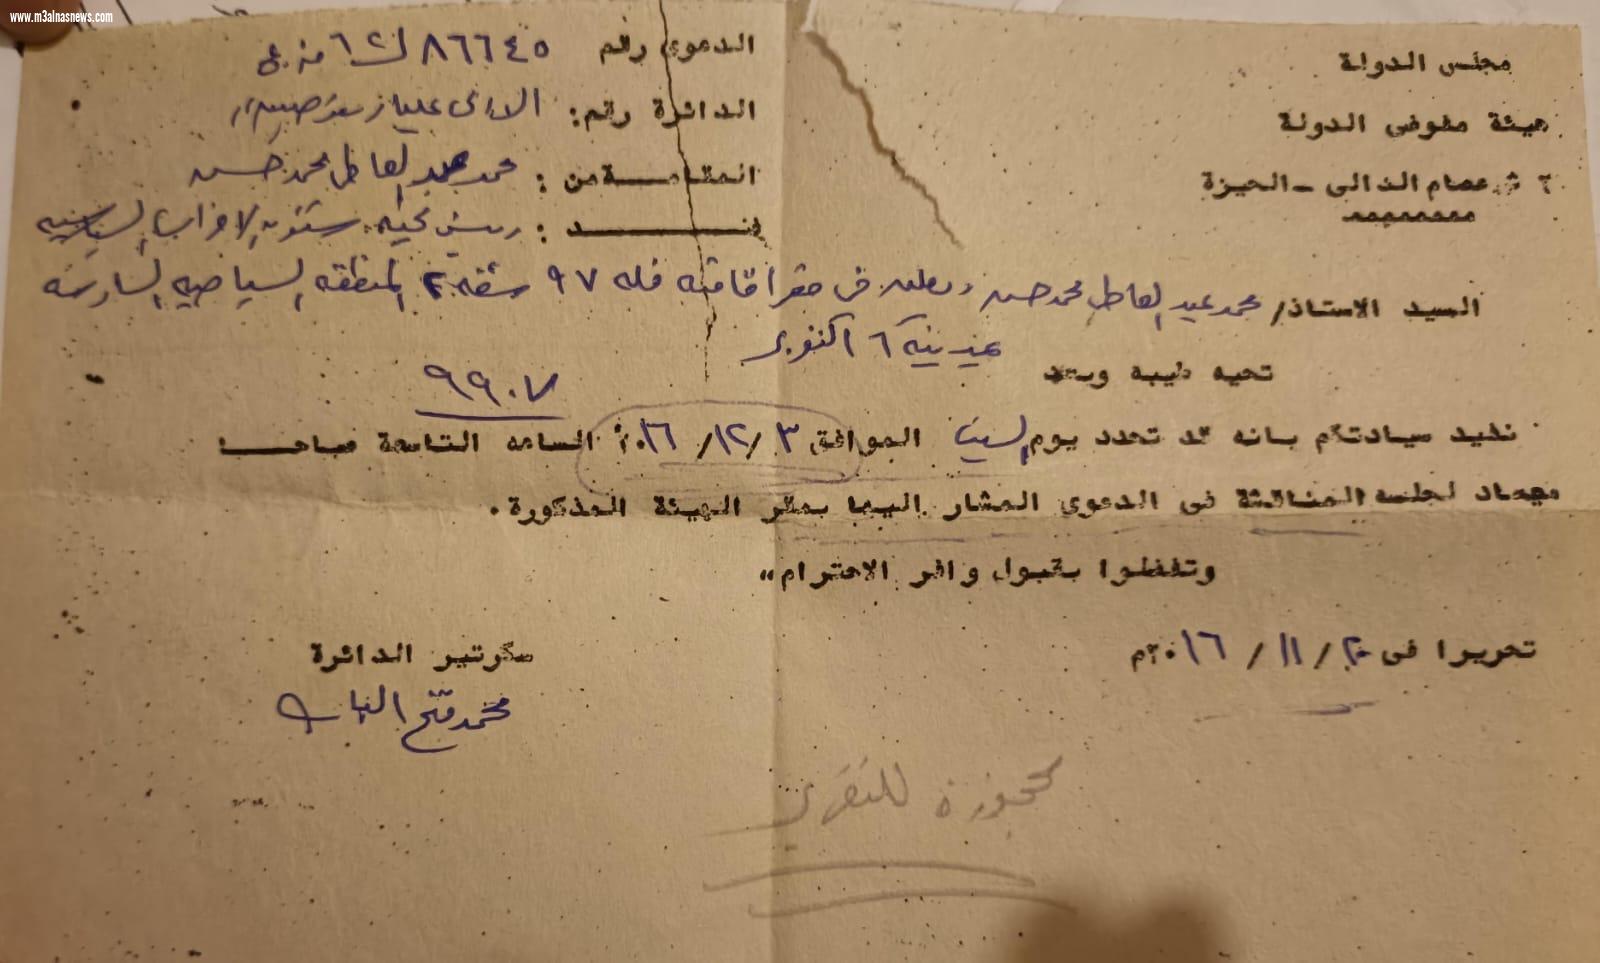 www.m3alnasnews.com
مجلس الدولة
هيئة مفوضى الدولة
٢ ش عصام الدالى - الجيزة
الدعوى رقم ٨٦٦٤٥ لـ
الدائرة رقم:
المقامة من : محمد عبد العاطى محمد حسن
ضد : رئيس لجنة شئون الاحزاب السياسية
السيد الاستاذ/ محمد عبد العاطى محمد حسن ويعلن فى مقر اقامته فله ٩٧ شقة ٢ المنطقة السياحيه السادسة
بمدينة ٦ اكتوبر
تحيه طيبه وبعد
٩٩٠٧
نفيد سيادتكم بانه قد تحدد يوم السبت الموافق ٣ /١٢/ ٢٠١٦ الساعه التاسعة صباحا
ميعاد لجلسه المناقشة فى الدعوى المشار اليها بمقر الهيئة المذكورة .
وتفضلوا بقبول وافر الاحترام ،،
تحريرا فى ٢٠ / ١١ / ٢٠١٦م
سكرتير الدائرة
محمد فتح الباب
محجوزة للتقرير